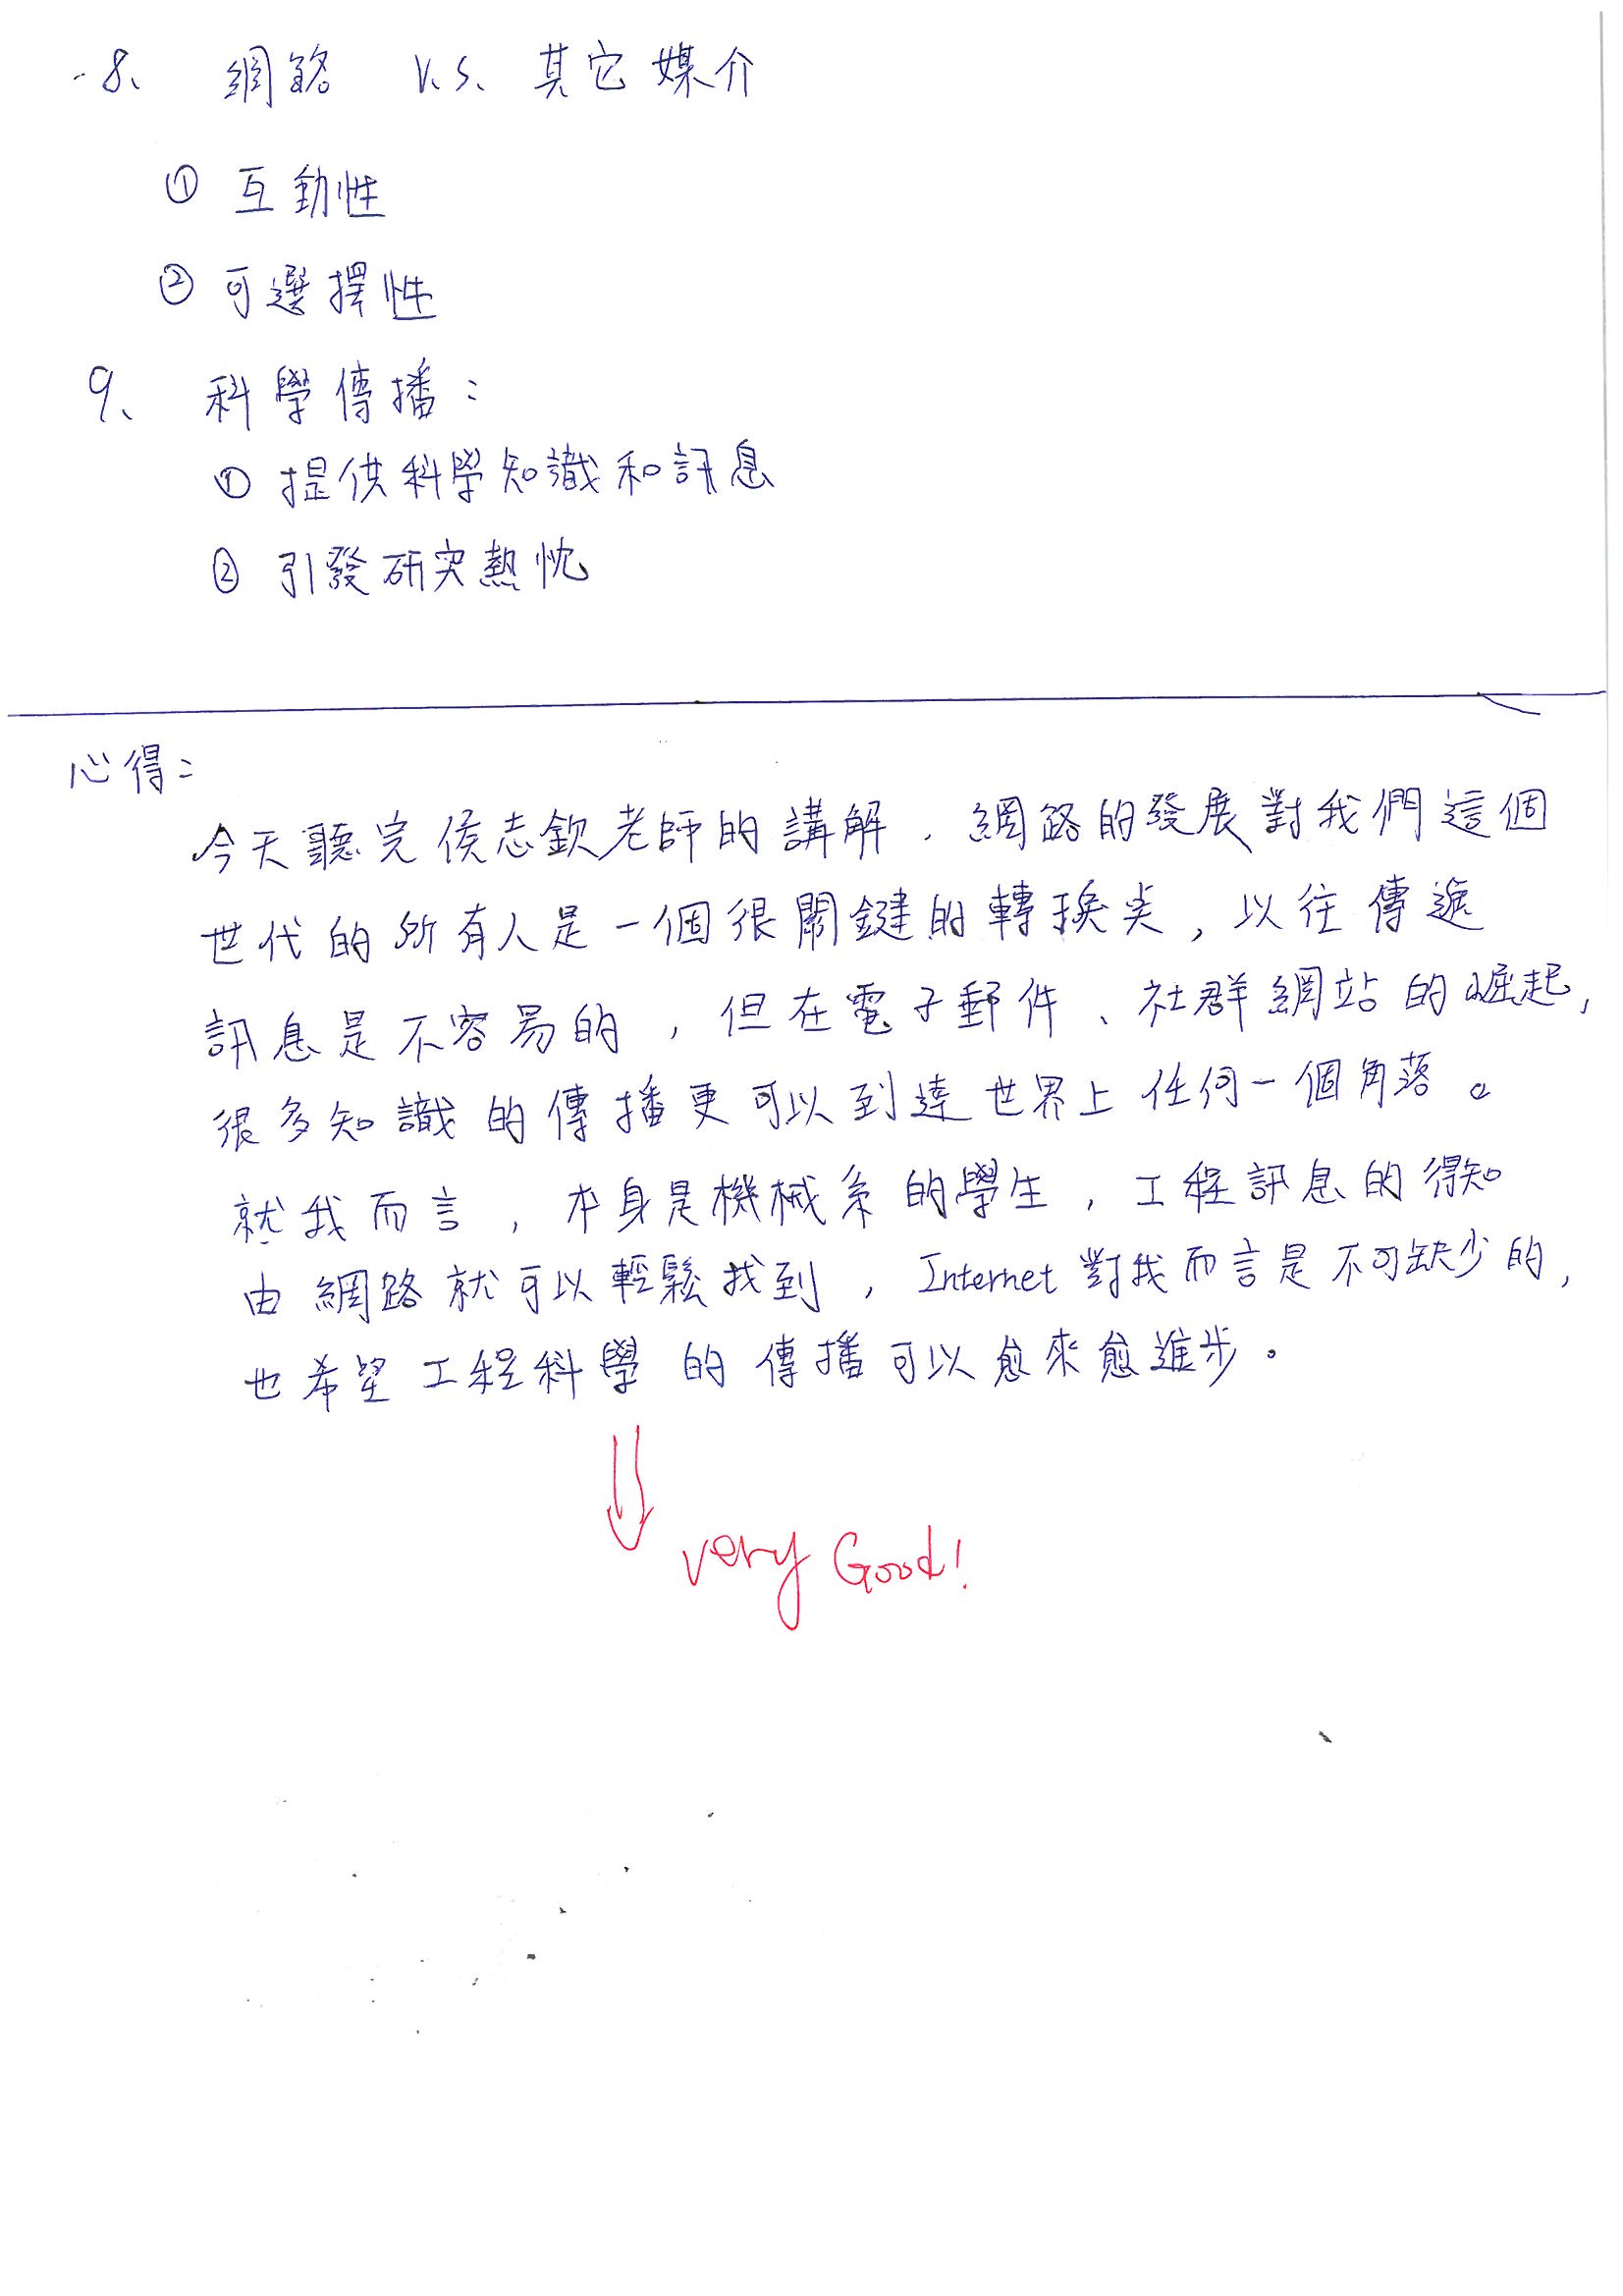 8、 網路 V.S. 其它媒介
① 互動性
② 可選擇性
9、 科學傳播：
① 提供科學知識和訊息
② 引發研究熱忱
心得：
今天聽完侯志欽老師的講解，網路的發展對我們這個
世代的所有人是一個很關鍵的轉換点，以往傳遞
訊息是不容易的，但在電子郵件、社群網站的崛起，
很多知識的傳播更可以到達世界上任何一個角落。
就我而言，本身是機械系的學生，工程訊息的得知
由網路就可以輕鬆找到，Internet對我而言是不可缺少的，
也希望工程科學的傳播可以愈來愈進步。
very Good!